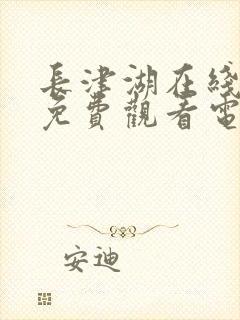 長津湖在綫
免費觀看電
安迪